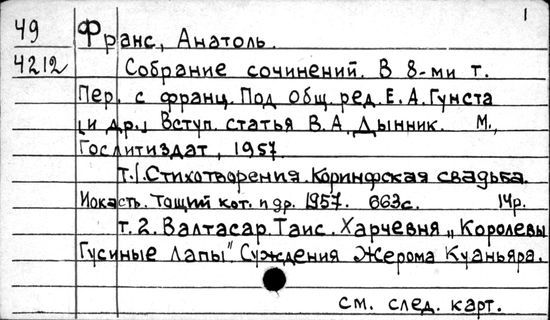 1
49 Франс, Анатоль.
4212 Собрание сочинений. В 8-ми т.
Пер. с франц. Под общ. ред. Е. А. Гунста
[и др.] Вступ. статья В. А. Дынник. М.,
Гослитиздат, 1957.
т. 1. Стихотворения. Коринфская свадьба.
Иокаста. Тощий кот. и др. 1957. 663с. 14р.
т. 2. Валтасар. Таис. Харчевня „Королевы
Гусиные Лапы" Суждения Жерома Куаньяра.
см. след. карт.